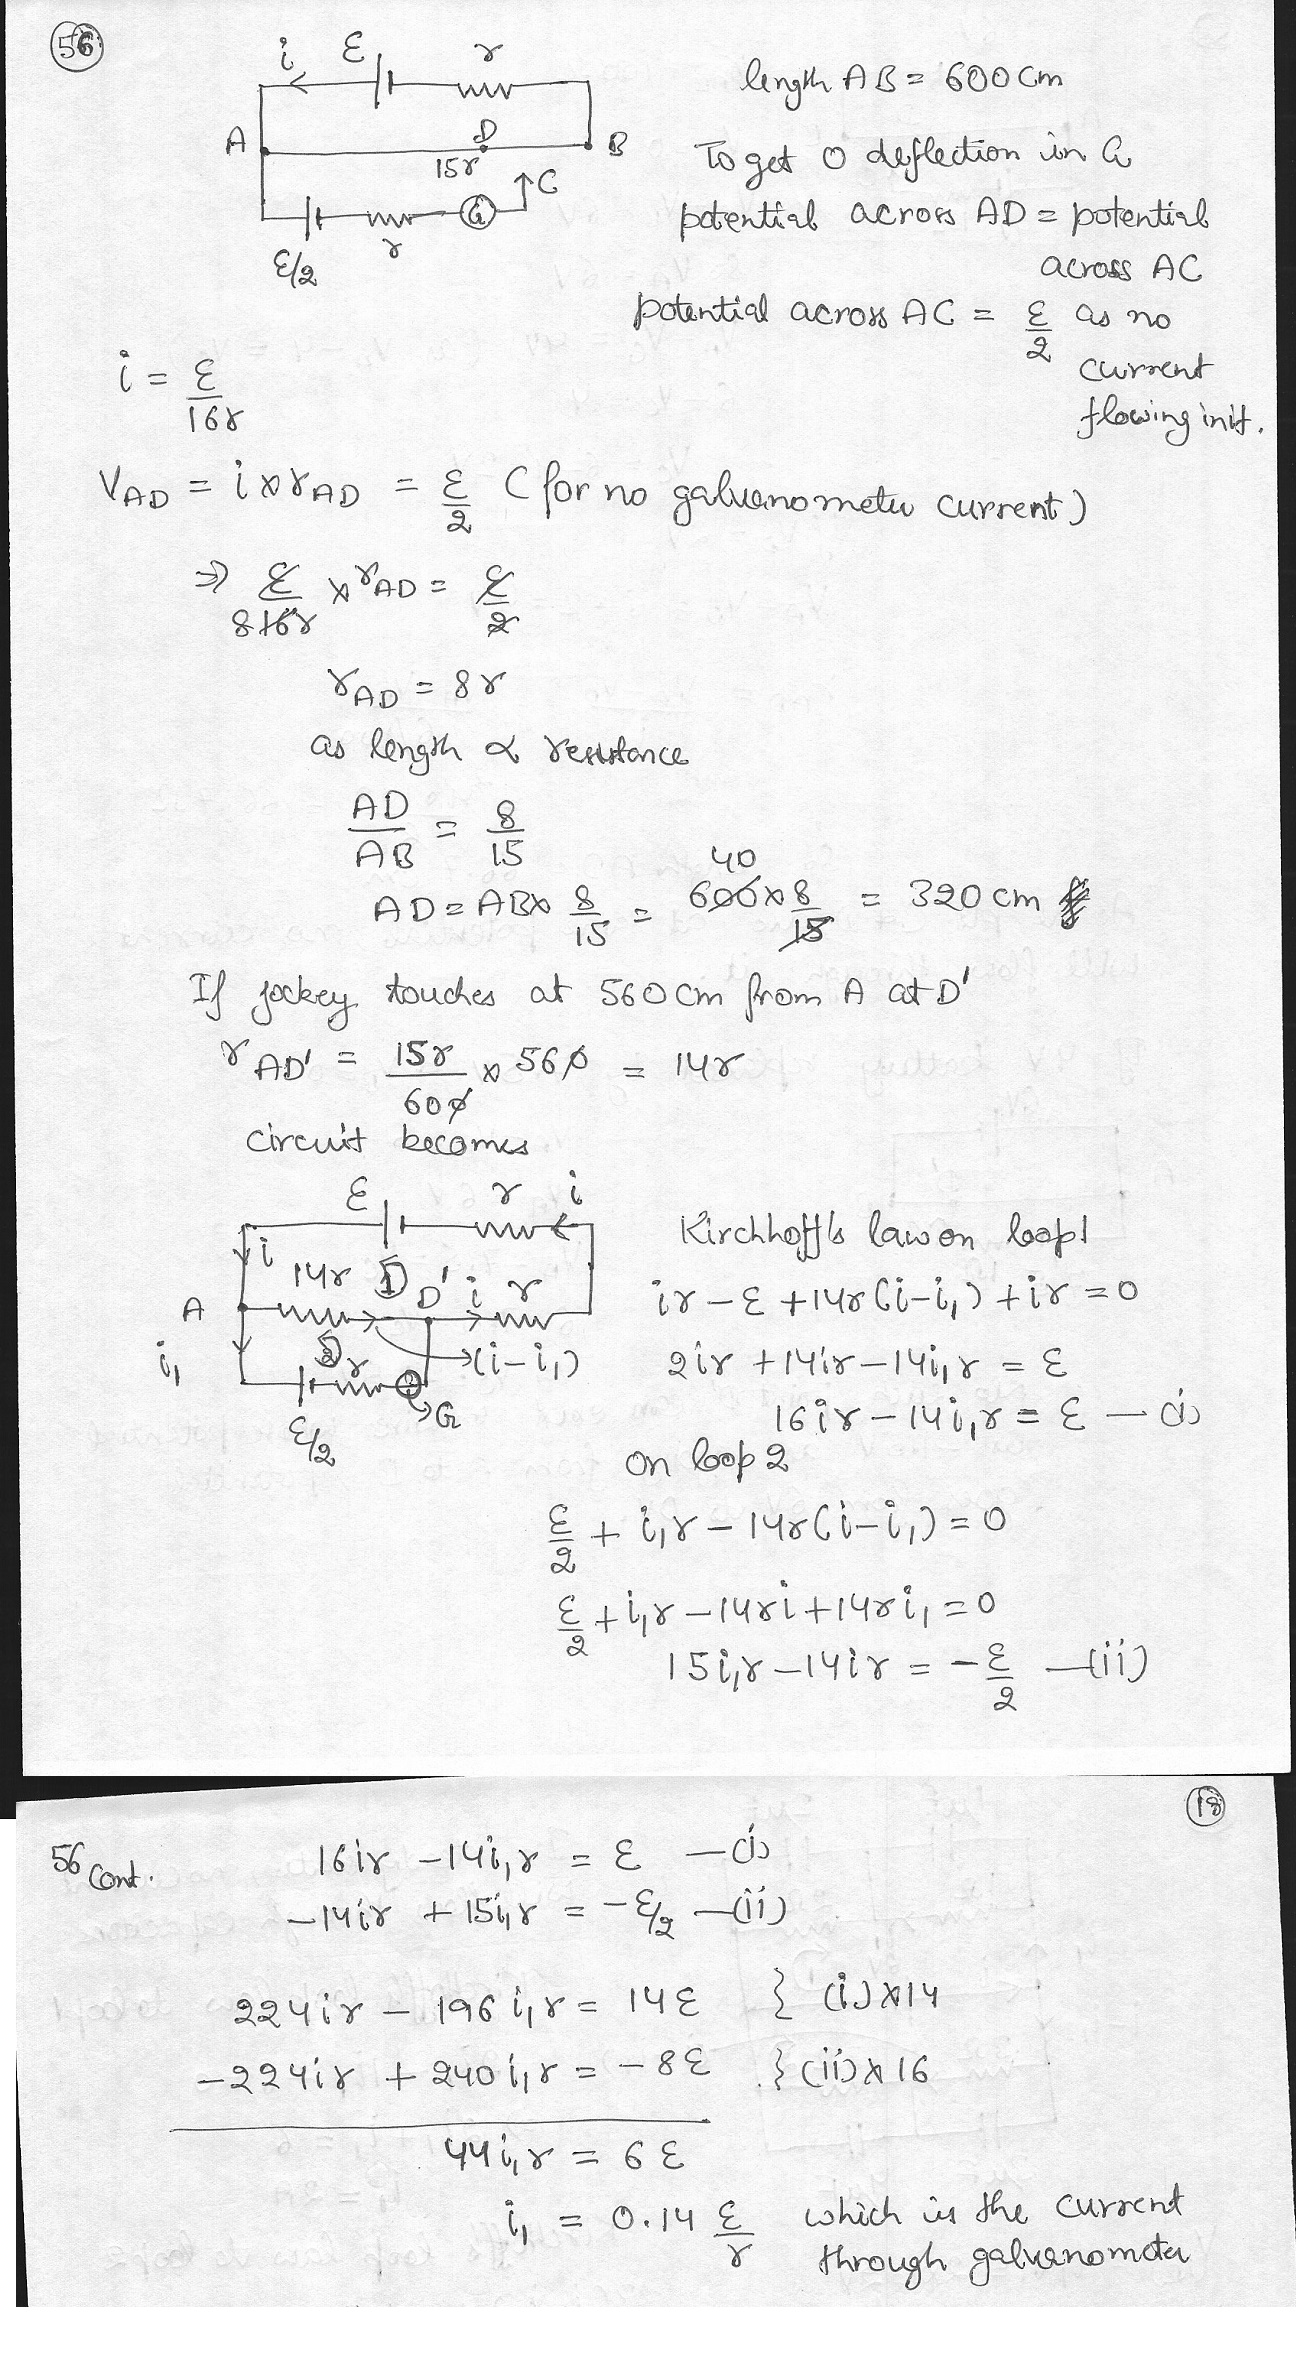 56
i ε r
A D B
15r
C
G
r
ε/2
length AB = 600 cm
To get 0 deflection in G
potential across AD = potential
across AC
potential across AC = ε/2 as no
current
flowing in it.
i = ε/16r
V_AD = i × r_AD = ε/2 (for no galvanometer current)
⇒ ε/16r × r_AD = ε/2
8
r_AD = 8r
as length ∝ resistance
AD/AB = 8/15
AD = AB × 8/15 = 600 × 8/15 = 320 cm
40
If jockey touches at 560 cm from A at D'
r_AD' = 15r/600 × 560 = 14r
circuit becomes
ε r i
i
14r 1 D' i r
A
i₁ 2 r (i-i₁)
G
ε/2
Kirchhoff's law on loop 1
ir - ε + 14r(i-i₁) + ir = 0
2ir + 14ir - 14i₁r = ε
16ir - 14i₁r = ε — (i)
on loop 2
ε/2 + i₁r - 14r(i-i₁) = 0
ε/2 + i₁r - 14ri + 14ri₁ = 0
15i₁r - 14ir = -ε/2 — (ii)
18
56 Cont.
16ir - 14i₁r = ε — (i)
-14ir + 15i₁r = -ε/2 — (ii)
224ir - 196i₁r = 14ε } (i)×14
-224ir + 240i₁r = -8ε } (ii)×16
44i₁r = 6ε
i₁ = 0.14 ε/r which is the current
through galvanometer